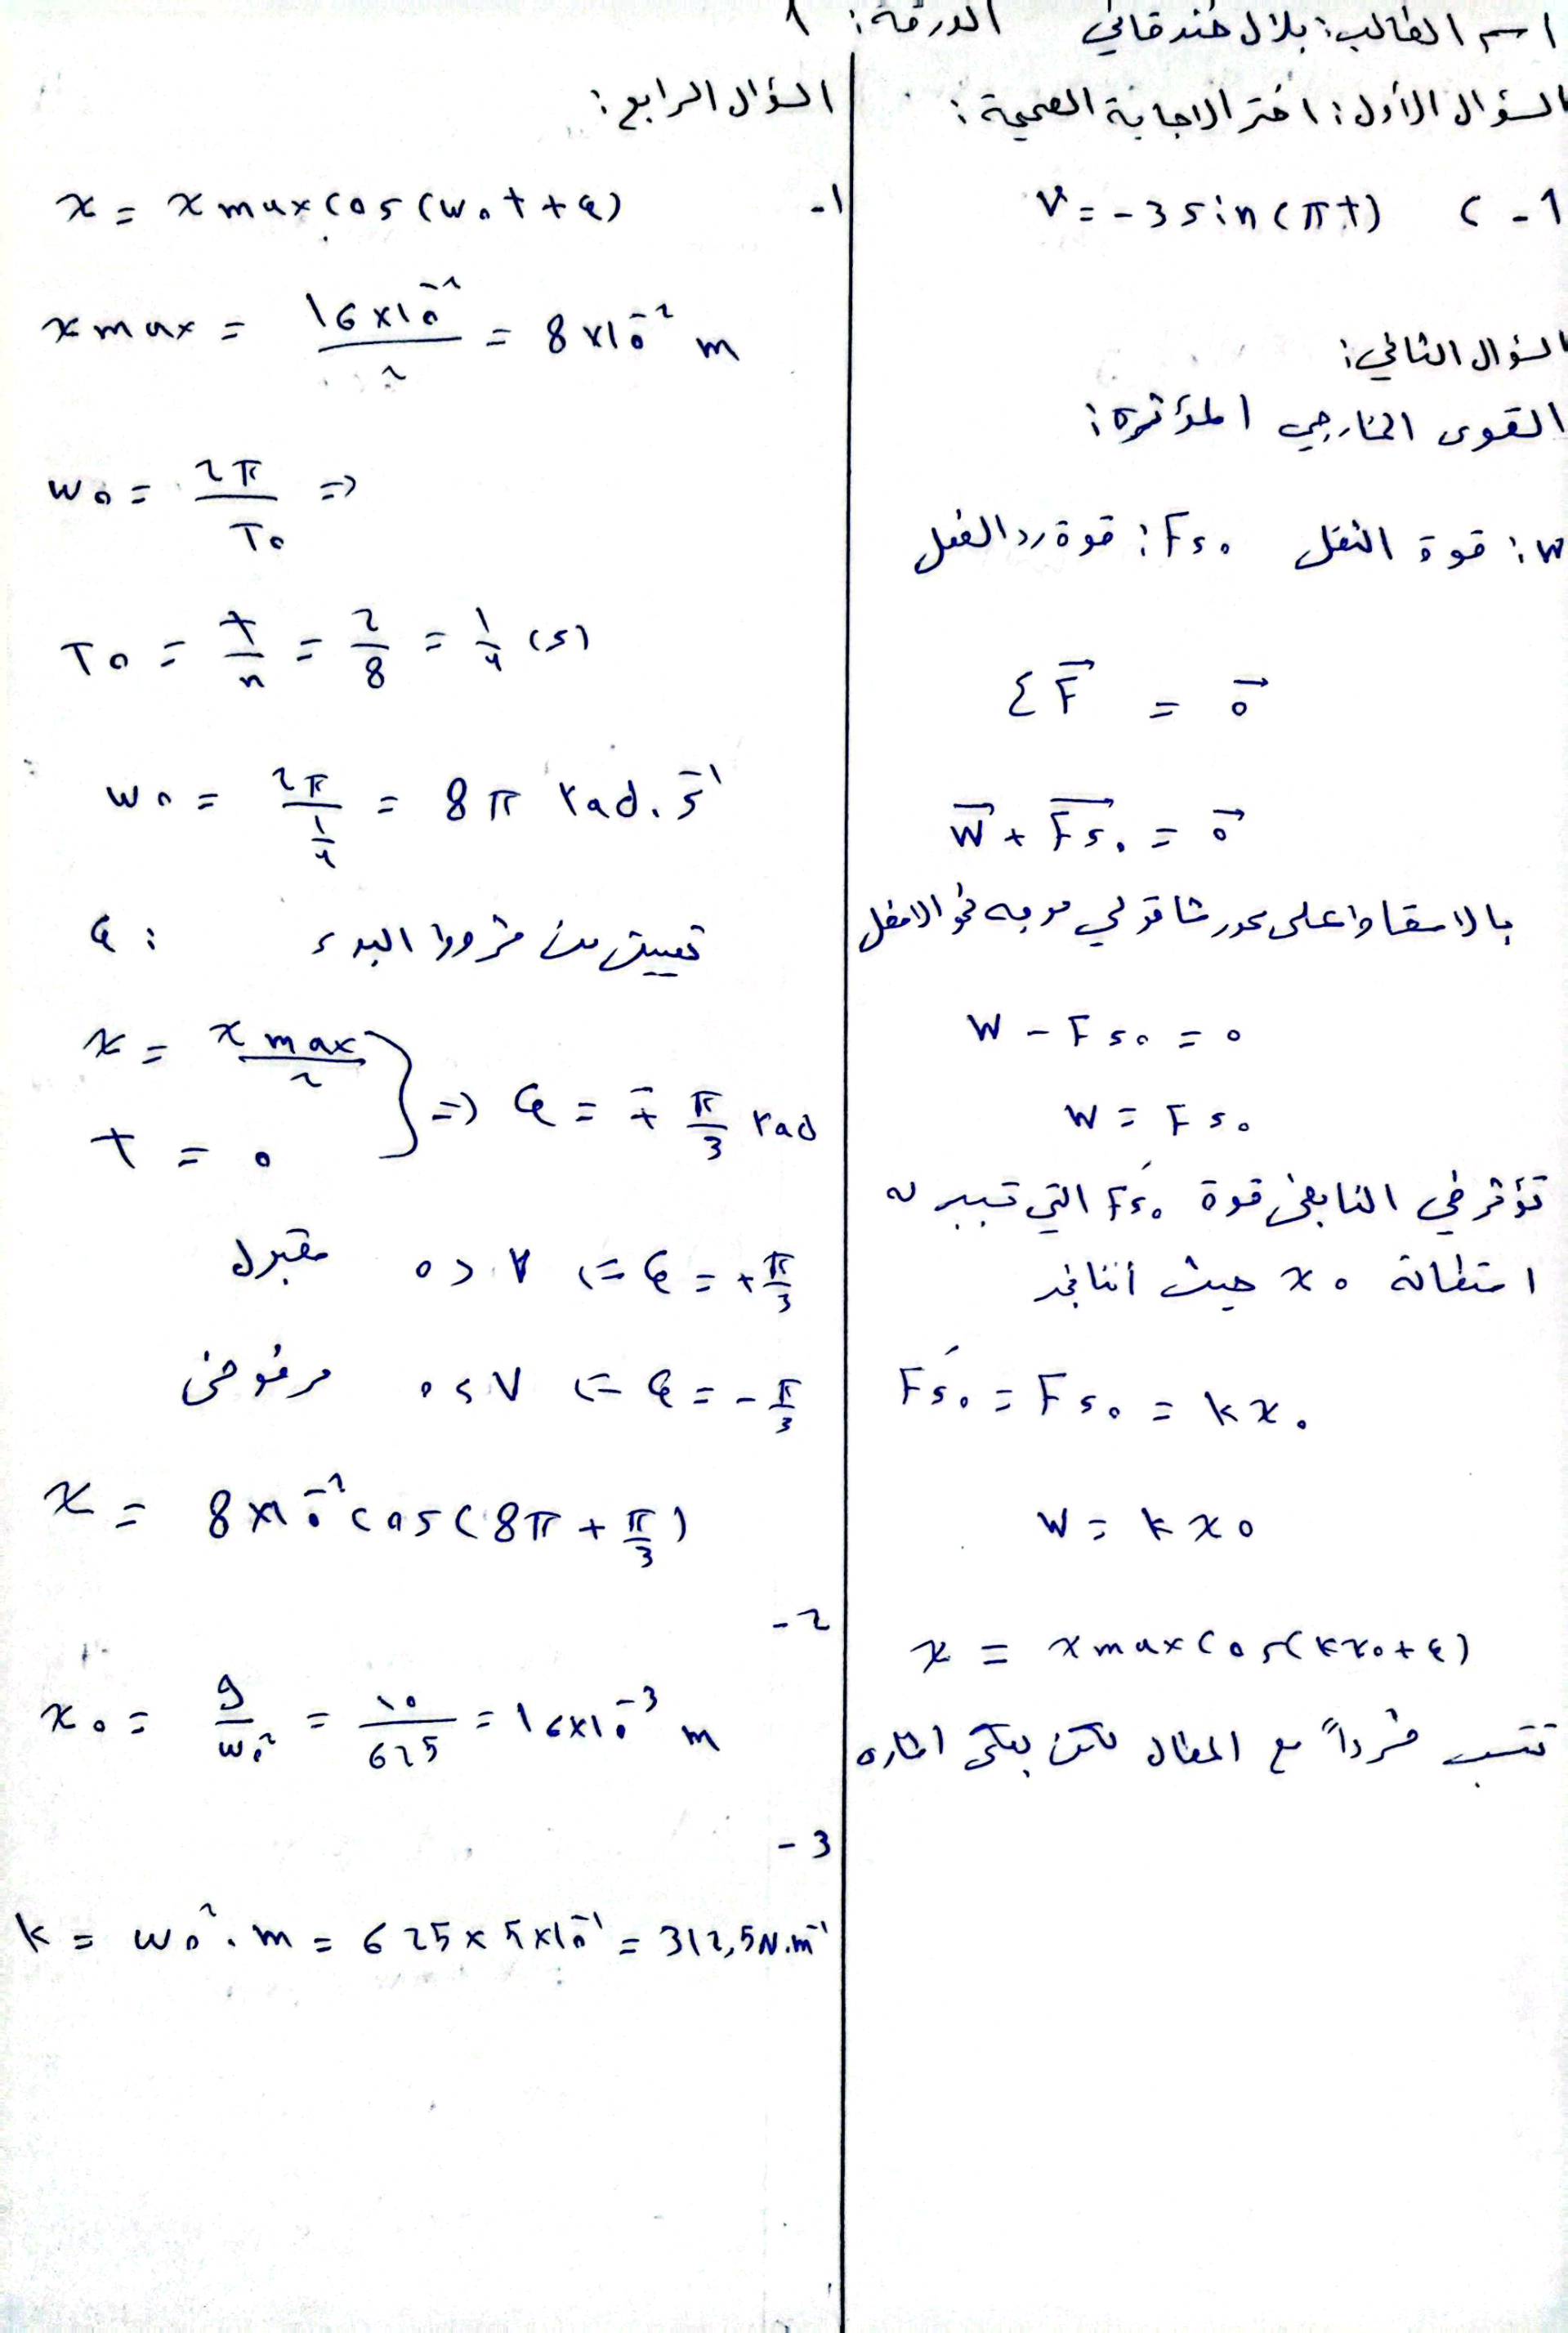 اسم الطالب: بلال خندقاني الورقة: 1
السؤال الأول: اختر الاجابة الصحيحة:
1- c) v = -3 sin(πt)
السؤال الثاني:
القوى الخارجي المؤثرة:
W: قوة الثقل Fs₀: قوة رد الفعل
Σ F⃗ = 0⃗
W⃗ + F⃗s₀ = 0⃗
بالاسقاط على محور شاقولي موجه نحو الاسفل
W - Fs₀ = 0
W = Fs₀
تؤثر في النابض قوة F́s₀ التي تسبب له
استطالة x₀ حيث أننا نجد
F́s₀ = Fs₀ = kx₀
W = kx₀
x = xmax cos(kx₀ + φ)
تتسب طرداً مع المطال بعكس اشاره
السؤال الرابع:
1- x = xmax cos(w₀t + φ)
xmax = 16×10⁻² / 2 = 8×10⁻² m
w₀ = 2π / T₀ =>
T₀ = t/n = 2/8 = 1/4 (s)
w₀ = 2π / (1/4) = 8π rad.s⁻¹
φ: تعيين من شروط البدء
x = xmax / 2
t = 0 } => φ = ∓ π/3 rad
φ = +π/3 => v < 0 مقبول
φ = -π/3 => v > 0 مرفوض
x = 8×10⁻² cos(8π + π/3)
2-
x₀ = g / w₀² = 10 / 625 = 16×10⁻³ m
3-
k = w₀² . m = 625 × 5×10⁻¹ = 312,5 N.m⁻¹